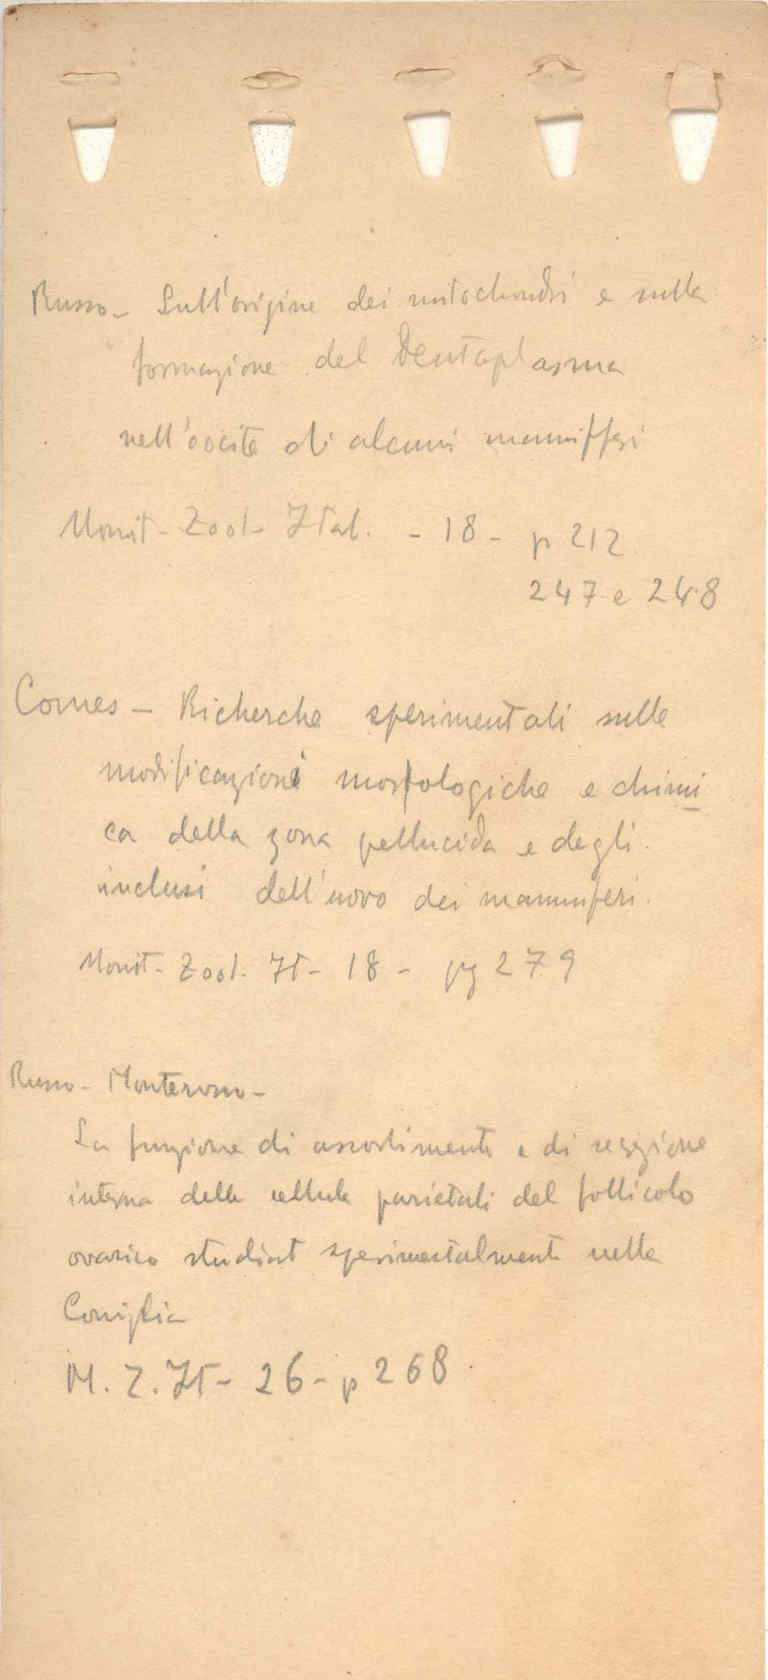 Russo - Sull'origine dei mitochondri e sulla
formazione del Deutoplasma
nell'oocite di alcuni mammifferi
Monit - Zool - Ital. - 18 - p 212
247 e 248
Comes - Richerche sperimentali sulle
modificazioni morfologiche e chimi
ca della zona pellucida e degli
inclusi dell'uovo dei mammiferi.
Monit - Zool - It - 18 - pg 279
Russo - Monterosso -
La funzione di assortimento e di secrezione
interna delle cellule parietali del follicolo
ovarico studiat sperimentalmente nella
Coniglia
M. Z. It - 26 - p 268